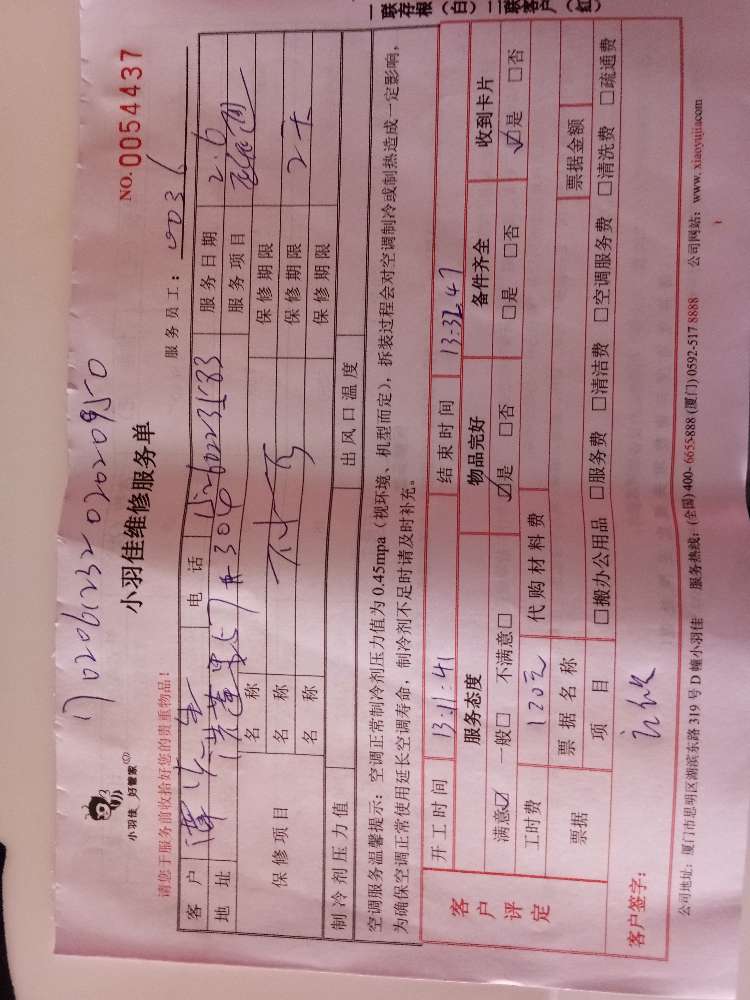 一联存根(白)二联客户(红)
170206123202020950
小羽佳 好管家
小羽佳维修服务单
NO.0054437
请您于服务前收拾好您的贵重物品!
服务员工: 0036
客户 电话 服务日期 2.6
地址 服务项目
保修项目 名称 保修期限
名称 保修期限 2天
名称 保修期限
制冷剂压力值 出风口温度
空调服务温馨提示:空调正常制冷剂压力值为0.45mpa(视环境、机型而定),拆装过程会对空调制冷或制热造成一定影响,
为确保空调正常使用延长空调寿命,制冷剂不足时请及时补充。
客户评定
开工时间 结束时间 13:32.47
服务态度 物品完好 备件齐全 收到卡片
满意☑ 一般□ 不满意□ ☑是 □否 □是 □否 ☑是 □否
工时费 120元 代购材料费
票据 票据名称 票据金额
项目 □搬办公用品 □服务费 □清洁费 □空调服务费 □清洗费 □疏通费
客户签字:
公司地址:厦门市思明区湖滨东路319号D幢小羽佳 服务热线:(全国)400-6655-888(厦门)0592-517 8888 公司网站:www.xiaoyujia.com